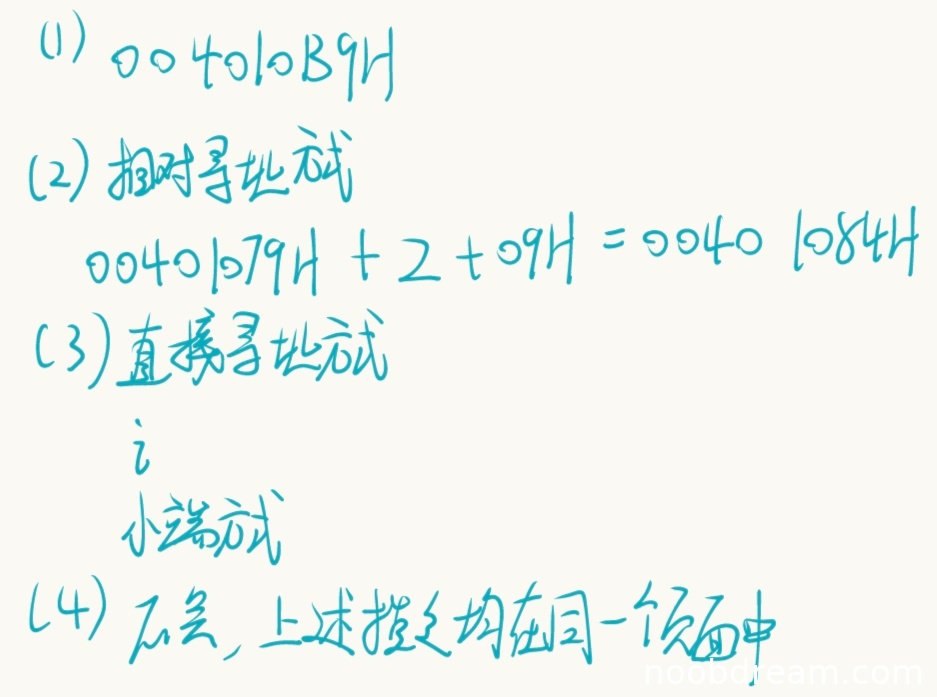 (1) 004010B9H
(2) 相对寻址方式
00401079H + 2 + 09H = 0040 1084H
(3) 直接寻址方式
i
小端方式
(4) 不会, 上述指令均在同一个页面中
noobdream.com